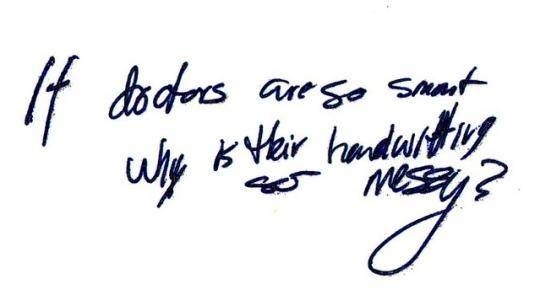 If doctors are so smart
Why is their handwritting
so messy?